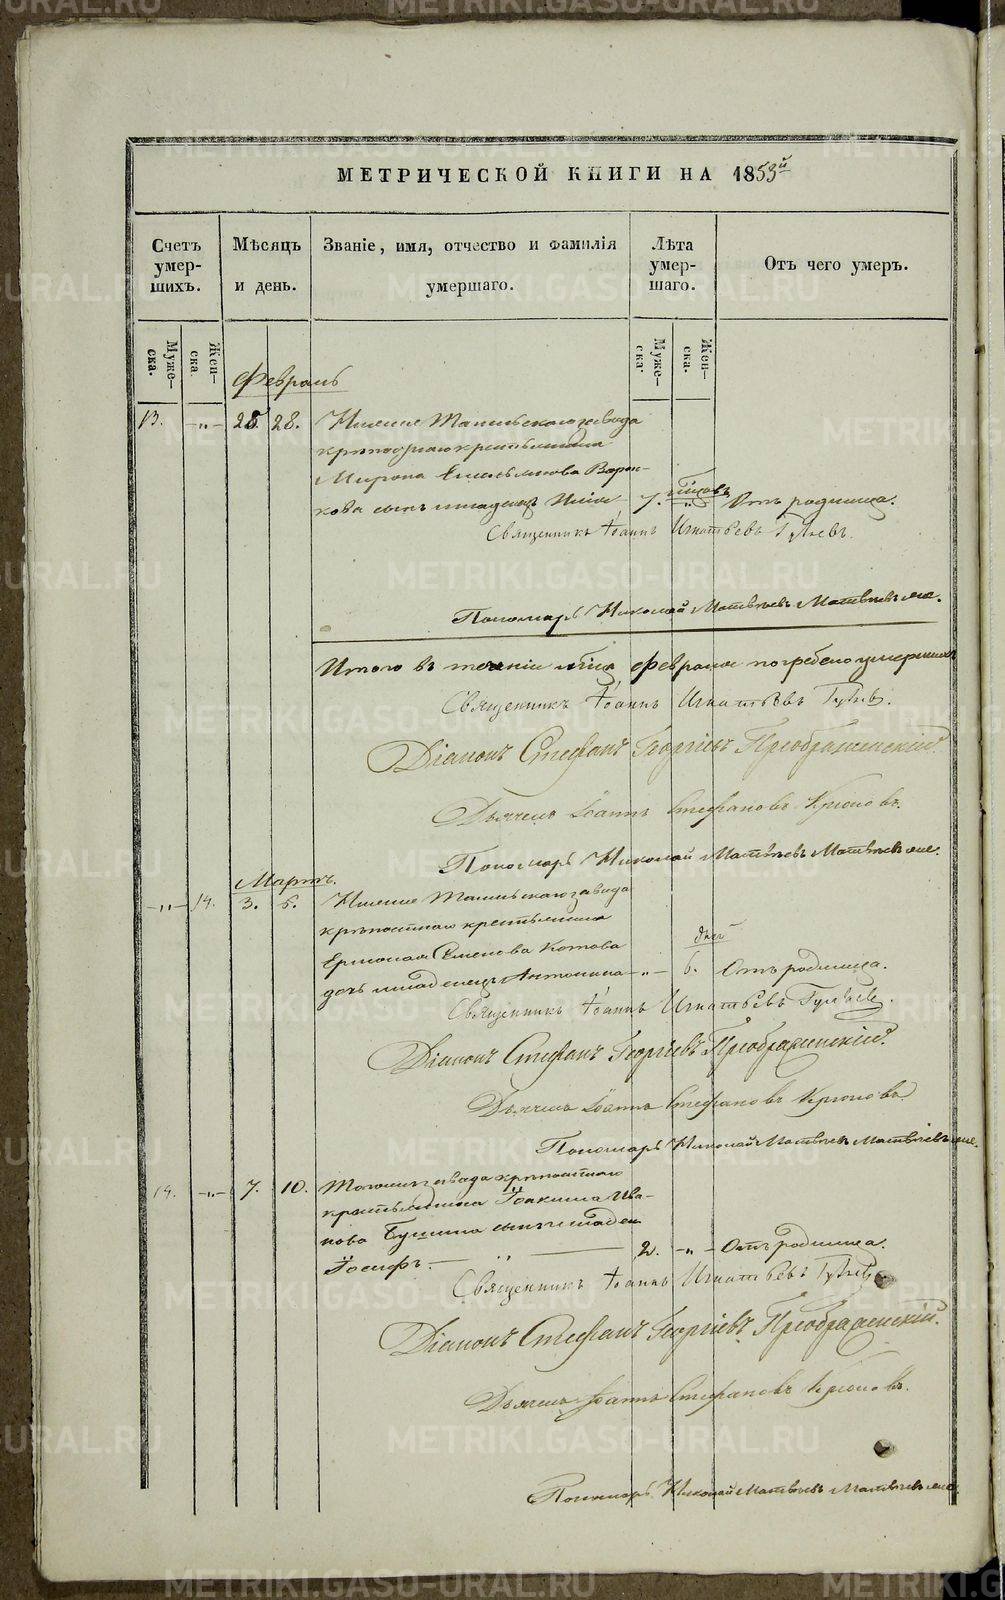 МЕТРИЧЕСКОЙ КНИГИ НА 1853й
Счетъ умер-шихъ.
Мѣсяцъ и день.
Званіе, имя, отчество и фамилія умершаго.
Лѣта умер-шаго.
Отъ чего умеръ.
Муже-ска.
Жен-ска.
Муже-ска.
Жен-ска.
Февраль
13. -„- 25. 28. Нижне Тагильскаго завода
крѣпостнаго крестьянина
Мирона Емельянова Ворон-
кова сынъ младенецъ 7. Отъ родимца.
Священникъ Іоаннъ Игнатьевъ
Пономарь Николай Матвѣевъ
Итого въ теченіи мѣсяца Февраля погребено умершихъ
Священникъ Іоаннъ Игнатьевъ
Діаконъ Стефанъ Георгіевъ Преображенскій.
Дьячекъ Іоаннъ Стефановъ Крюковъ.
Пономарь Николай Матвѣевъ
Мартъ.
-„- 14. 3. 5. Нижне Тагильскаго завода
крѣпостнаго крестьянина
Ермолая Семенова Котова
дней
дочь младенецъ Антонина -„- 6. Отъ родимца.
Священникъ Іоаннъ Игнатьевъ
Діаконъ Стефанъ Георгіевъ Преображенскій.
Дьячекъ Іоаннъ Стефановъ Крюковъ.
Пономарь Николай Матвѣевъ
14. -„- 7. 10. Тогожъ завода крѣпостнаго
крестьянина Іоакима Ива-
нова сынъ младен
Іосифъ. 2. -„- Отъ родимца.
Священникъ Іоаннъ Игнатьевъ
Діаконъ Стефанъ Георгіевъ Преображенскій.
Дьячекъ Іоаннъ Стефановъ Крюковъ.
Пономарь Николай Матвѣевъ
METRIKI.GASO-URAL.RU